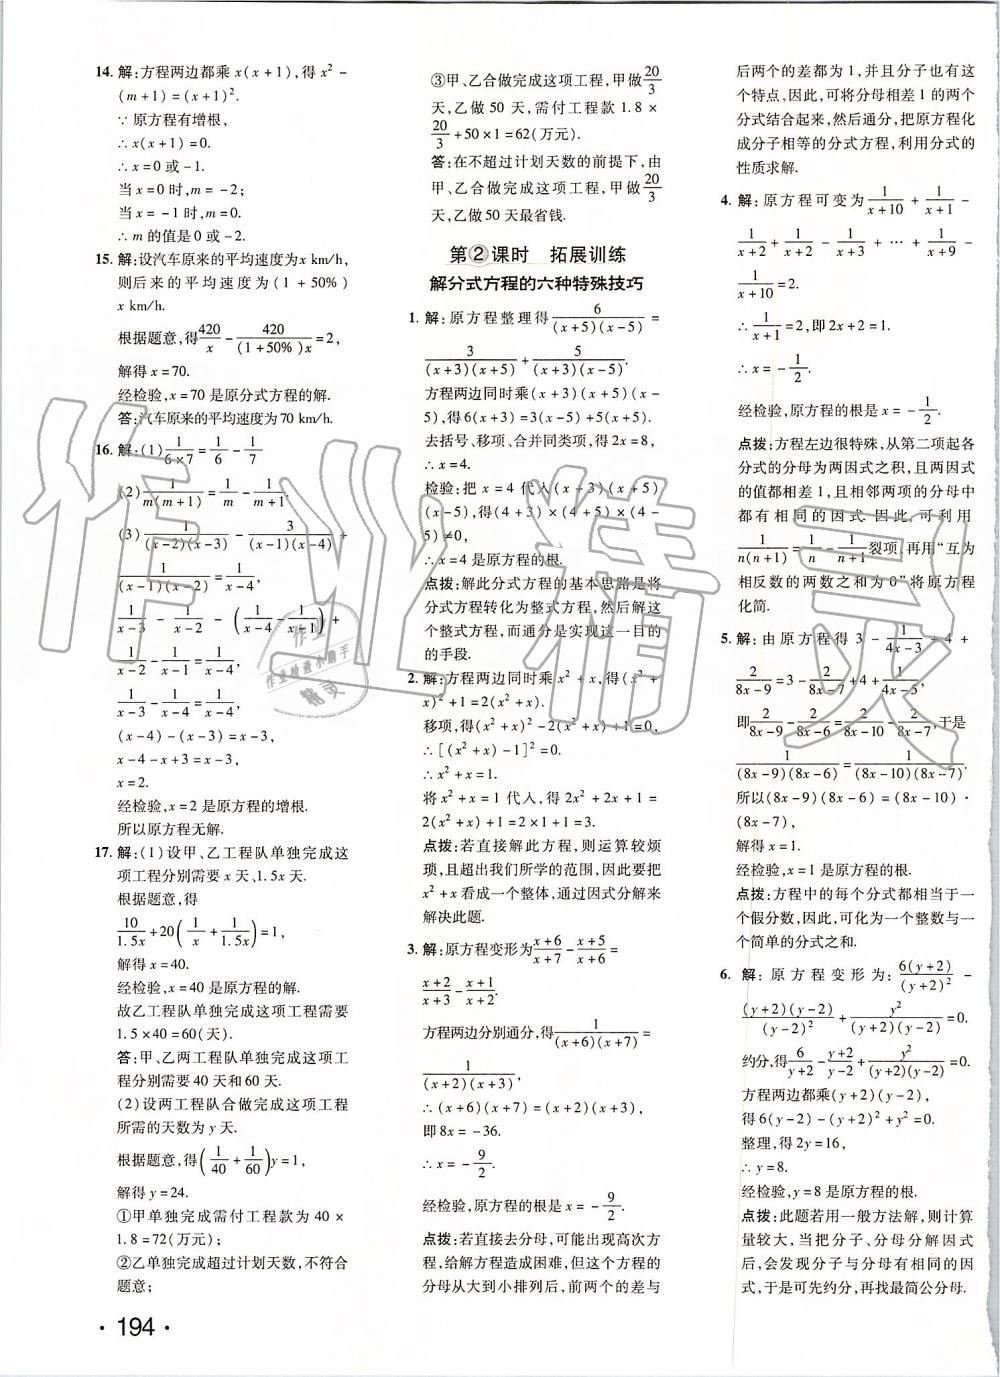 14. 解:方程两边都乘 x(x+1),得 x²-
(m+1)=(x+1)².
∵ 原方程有增根,
∴ x(x+1)=0.
∴ x=0 或 -1.
当 x=0 时,m=-2;
当 x=-1 时,m=0.
∴ m 的值是 0 或 -2.
15. 解:设汽车原来的平均速度为 x km/h,
则后来的平均速度为(1+50%)
x km/h.
根据题意,得420/x-420/((1+50%)x)=2,
解得 x=70.
经检验,x=70 是原分式方程的解.
答:汽车原来的平均速度为 70 km/h.
16. 解:(1)1/(6×7)=1/6-1/7
(2)1/(m(m+1))=1/m-1/(m+1).
(3)1/((x-2)(x-3))-3/((x-1)(x-4))+
1/((x-1)(x-2))=1/(x-4),
1/(x-3)-1/(x-2)-(1/(x-4)-1/(x-1))+
1/(x-2)-1/(x-1)=1/(x-4),
1/(x-3)-1/(x-4)=1/(x-4),
(x-4)-(x-3)=x-3,
x-4-x+3=x-3,
x=2.
经检验,x=2 是原方程的增根.
所以原方程无解.
17. 解:(1)设甲、乙工程队单独完成这
项工程分别需要 x 天、1.5x 天.
根据题意,得
10/1.5x+20(1/x+1/1.5x)=1,
解得 x=40.
经检验,x=40 是原方程的解.
故乙工程队单独完成这项工程需要
1.5×40=60(天).
答:甲、乙两工程队单独完成这项工
程分别需要 40 天和 60 天.
(2)设两工程队合做完成这项工程
所需的天数为 y 天.
根据题意,得(1/40+1/60)y=1,
解得 y=24.
①甲单独完成需付工程款为 40×
1.8=72(万元);
②乙单独完成超过计划天数,不符合
题意;
· 194 ·
③甲、乙合做完成这项工程,甲做20/3
天,乙做 50 天,需付工程款 1.8×
20/3+50×1=62(万元).
答:在不超过计划天数的前提下,由
甲、乙合做完成这项工程,甲做20/3
天,乙做50 天最省钱.
第②课时 拓展训练
解分式方程的六种特殊技巧
1. 解:原方程整理得6/((x+5)(x-5))=
3/((x+3)(x-5))+5/((x+3)(x-5)).
方程两边同时乘(x+3)(x+5)(x-
5),得6(x+3)=3(x-5)+5(x+5).
去括号、移项、合并同类项,得2x=8,
∴ x=4.
检验:把 x=4 代入(x+3)(x+5)
(x-5),得(4+3)×(4+5)×(4-
5)≠0,
∴ x=4 是原方程的解.
点拨:解此分式方程的基本思路是将
分式方程转化为整式方程,然后解这
个整式方程,而通分是实现这一目的
的手段.
2. 解:方程两边同时乘 x²+x,得(x²+
x)²+1=2(x²+x).
移项,得(x²+x)²-2(x²+x)+1=0,
∴ [(x²+x)-1]²=0.
∴ x²+x=1.
将 x²+x=1 代入,得 2x²+2x+1=
2(x²+x)+1=2×1+1=3.
点拨:若直接解此方程,则运算较烦
琐,且超出我们所学的范围,因此要把
x²+x 看成一个整体,通过因式分解来
解决此题.
3. 解:原方程变形为(x+6)/(x+7)-(x+5)/(x+6)=
(x+2)/(x+3)-(x+1)/(x+2).
方程两边分别通分,得1/((x+6)(x+7))=
1/((x+2)(x+3)),
∴ (x+6)(x+7)=(x+2)(x+3),
即 8x=-36.
∴ x=-9/2.
经检验,原方程的根是 x=-9/2.
点拨:若直接去分母,可能出现高次方
程,给解方程造成困难,但这个方程的
分母从大到小排列后,前两个的差与
后两个的差都为 1,并且分子也有这
个特点,因此,可将分母相差 1 的两个
分式结合起来,然后通分,把原方程化
成分子相等的分式方程,利用分式的
性质求解.
4. 解:原方程可变为1/(x+10)+1/(x+1)-
1/(x+2)+1/(x+2)-1/(x+3)+…+1/(x+9)-
1/(x+10)=2.
∴1/(x+1)=2,即2x+2=1.
∴ x=-1/2.
经检验,原方程的根是 x=-1/2.
点拨:方程左边很特殊,从第二项起各
分式的分母为两因式之积,且两因式
的值都相差 1,且相邻两项的分母中
都有相同的因式. 因此,可利用
1/(n(n+1))=1/n-1/(n+1)裂项,再用“互为
相反数的两数之和为 0”将原方程
化简.
5. 解:由原方程得 3-1/(4x-3)+4+
2/(8x-9)=3-2/(8x-7)+4+1/(4x-5),
即2/(8x-9)-2/(8x-6)=2/(8x-10)-2/(8x-7),于是
1/((8x-9)(8x-6))=1/((8x-10)(8x-7)).
所以(8x-9)(8x-6)=(8x-10)·
(8x-7),
解得 x=1.
经检验,x=1 是原方程的根.
点拨:方程中的每个分式都相当于一
个假分数,因此,可化为一个整数与一
个简单的分式之和.
6. 解:原方程变形为:6(y+2)/(y+2)²-
(y+2)(y-2)/(y-2)²+y²/((y+2)(y-2))=0.
约分,得6/(y+2)-(y+2)/(y-2)+y²/((y+2)(y-2))=0.
方程两边都乘(y+2)(y-2),
得 6(y-2)-(y+2)²+y²=0.
整理,得 2y=16,
∴ y=8.
经检验,y=8 是原方程的根.
点拨:此题若用一般方法解,则计算
量较大,当把分子、分母分解因式
后,会发现分子与分母有相同的因
式,于是可先约分,再找最简公分母.
作业精灵